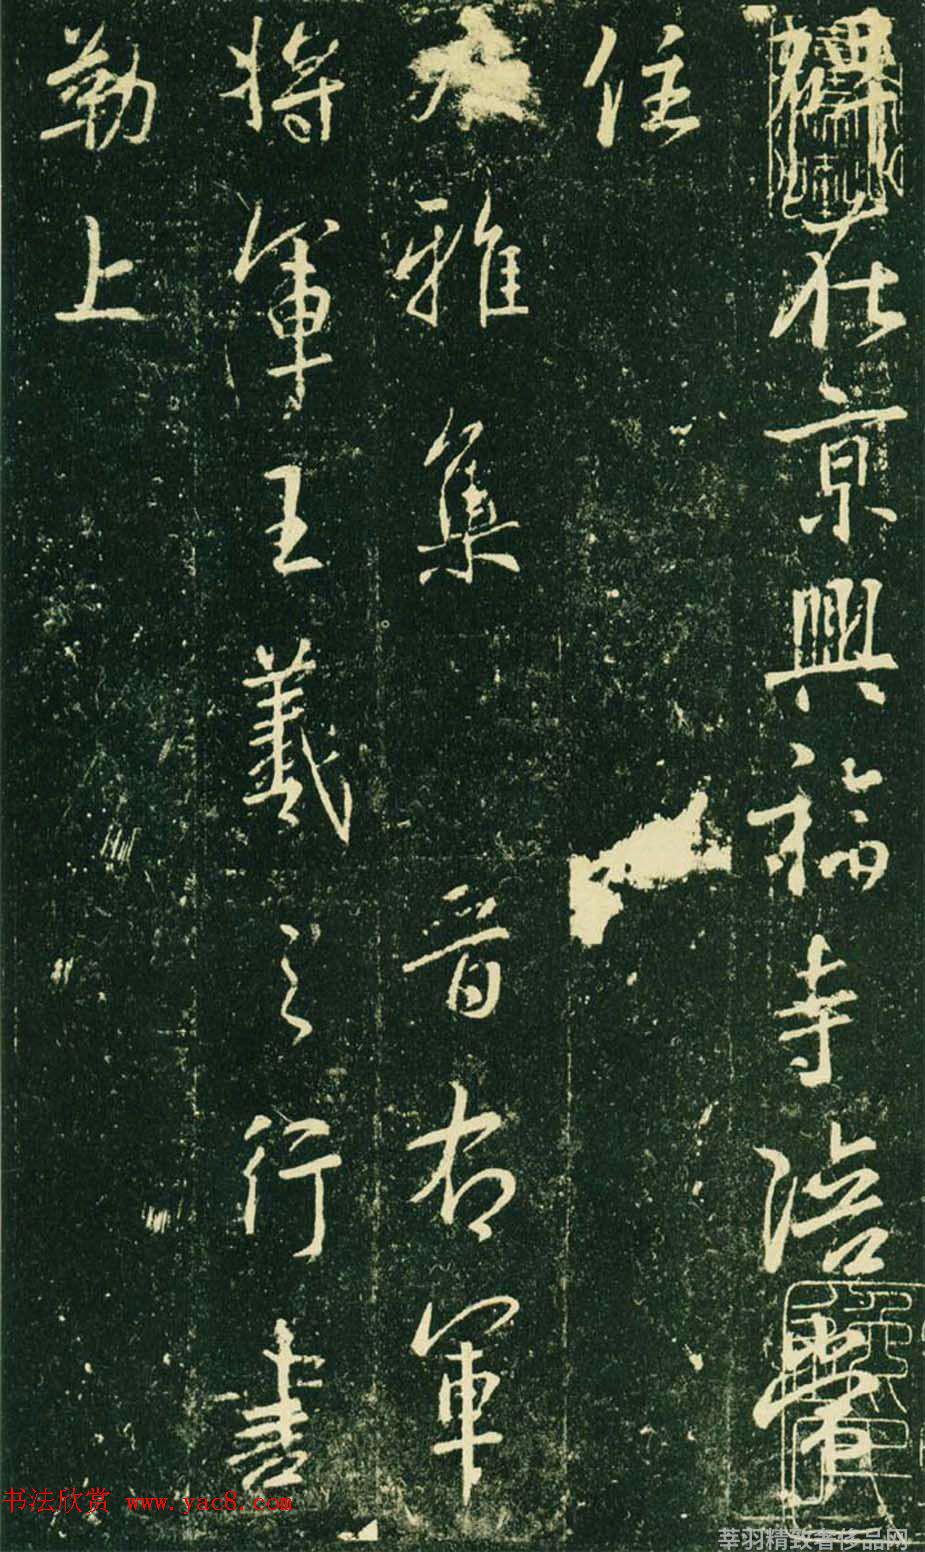 碑在京興福寺陪常
住
大雅集 晉右軍
將軍王羲之行書
勒上
书法欣赏 www.yac8.com
莘羽精致奢侈品网